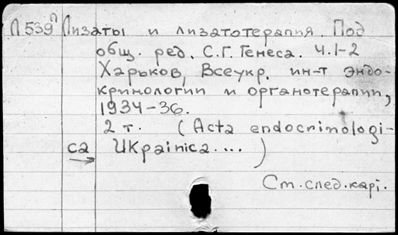 П 539п Лизаты и лизатотерапия. Под
общ. ред. С.Г. Генеса. Ч.1-2
Харьков, Всеукр. ин-т эндо-
кринологии и органотерапии,
1934-36.
2 т. (Acta endocrinologi-
ca Ukrainica....)
См.след.карт.